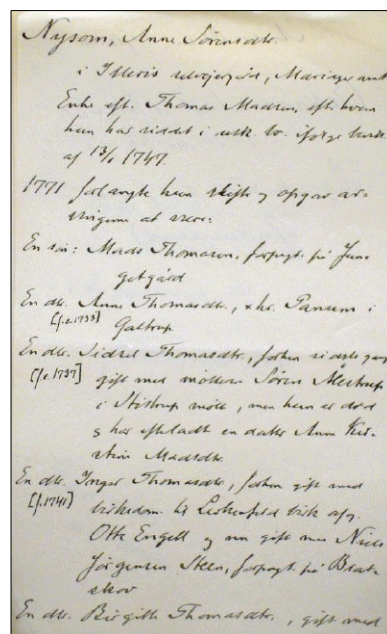 Nysom, Anne Sørensdtr.
i Illeris selvejergård, Mariager amt
Enke eft. Thomas Madsen, eft. hvem
hun har siddet i uskt. bo. ifølge bevill.
af 13/1 1747.
1771 forlangte hun skifte og opgav ar-
vingerne at være:
En søn: Mads Thomasen, forpagt. på
getgård
En dtr. Anne Thomasdtr., x hr. Panum i
[f.c.1733] Galtrup
En dtr. Sidsel Thomasdtr., forhen sidste gang
[f.c.1737] gift med mølleren Søren Mestrup
i Stistrup mølle, men hun er død
og har efterladt en datter Anne Kir-
stine Madsdtr.
En dtr. Inger Thomasdtr., forhen gift med
[f.1741] birkedom. hr Lerkenfeld birk afg.
Otte Engell og nu gift med Niels
Jørgensen Steen, forpagt. på Brat-
skov
En dtr. Birgitte Thomasdtr., gift med